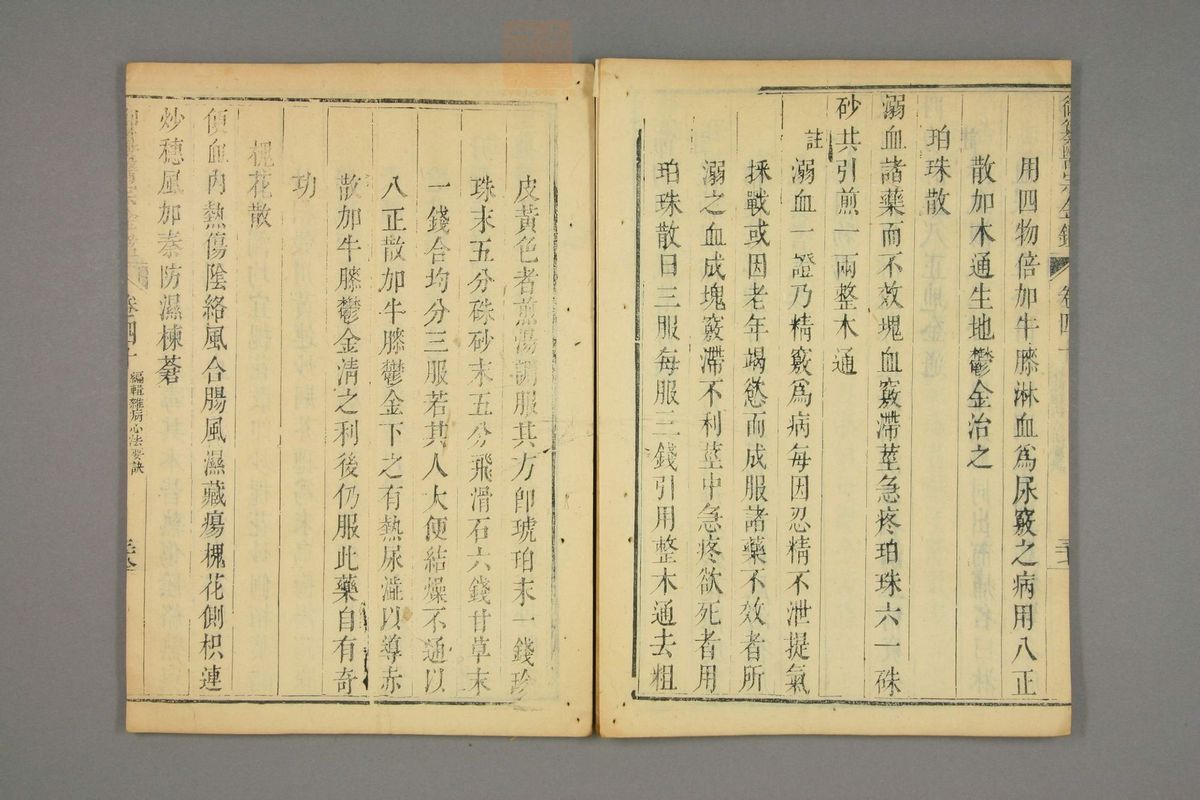 用四物倍加牛膝淋血爲尿竅之病用八正
散加木通生地鬱金治之
珀珠散
溺血諸藥而不效塊血竅滯莖急疼珀珠六一硃
砂共引煎一兩整木通
註溺血一證乃精竅爲病每因忍精不泄提氣
採戰或因老年竭慾而成服諸藥不效者所
溺之血成塊竅滯不利莖中急疼欲死者用
珀珠散日三服每服三錢引用整木通去粗
皮黃色者煎湯調服其方卽琥珀末一錢珍
珠末五分硃砂末五分飛滑石六錢甘草末
一錢合均分三服若其人大便結燥不通以
八正散加牛膝鬱金下之有熱尿澁以導赤
散加牛膝鬱金清之利後仍服此藥自有奇
功
槐花散
便血內熱傷陰絡風合腸風濕藏瘍槐花側枳連
炒穗風加秦防濕楝蒼
卷四十
編輯雜病心法要訣